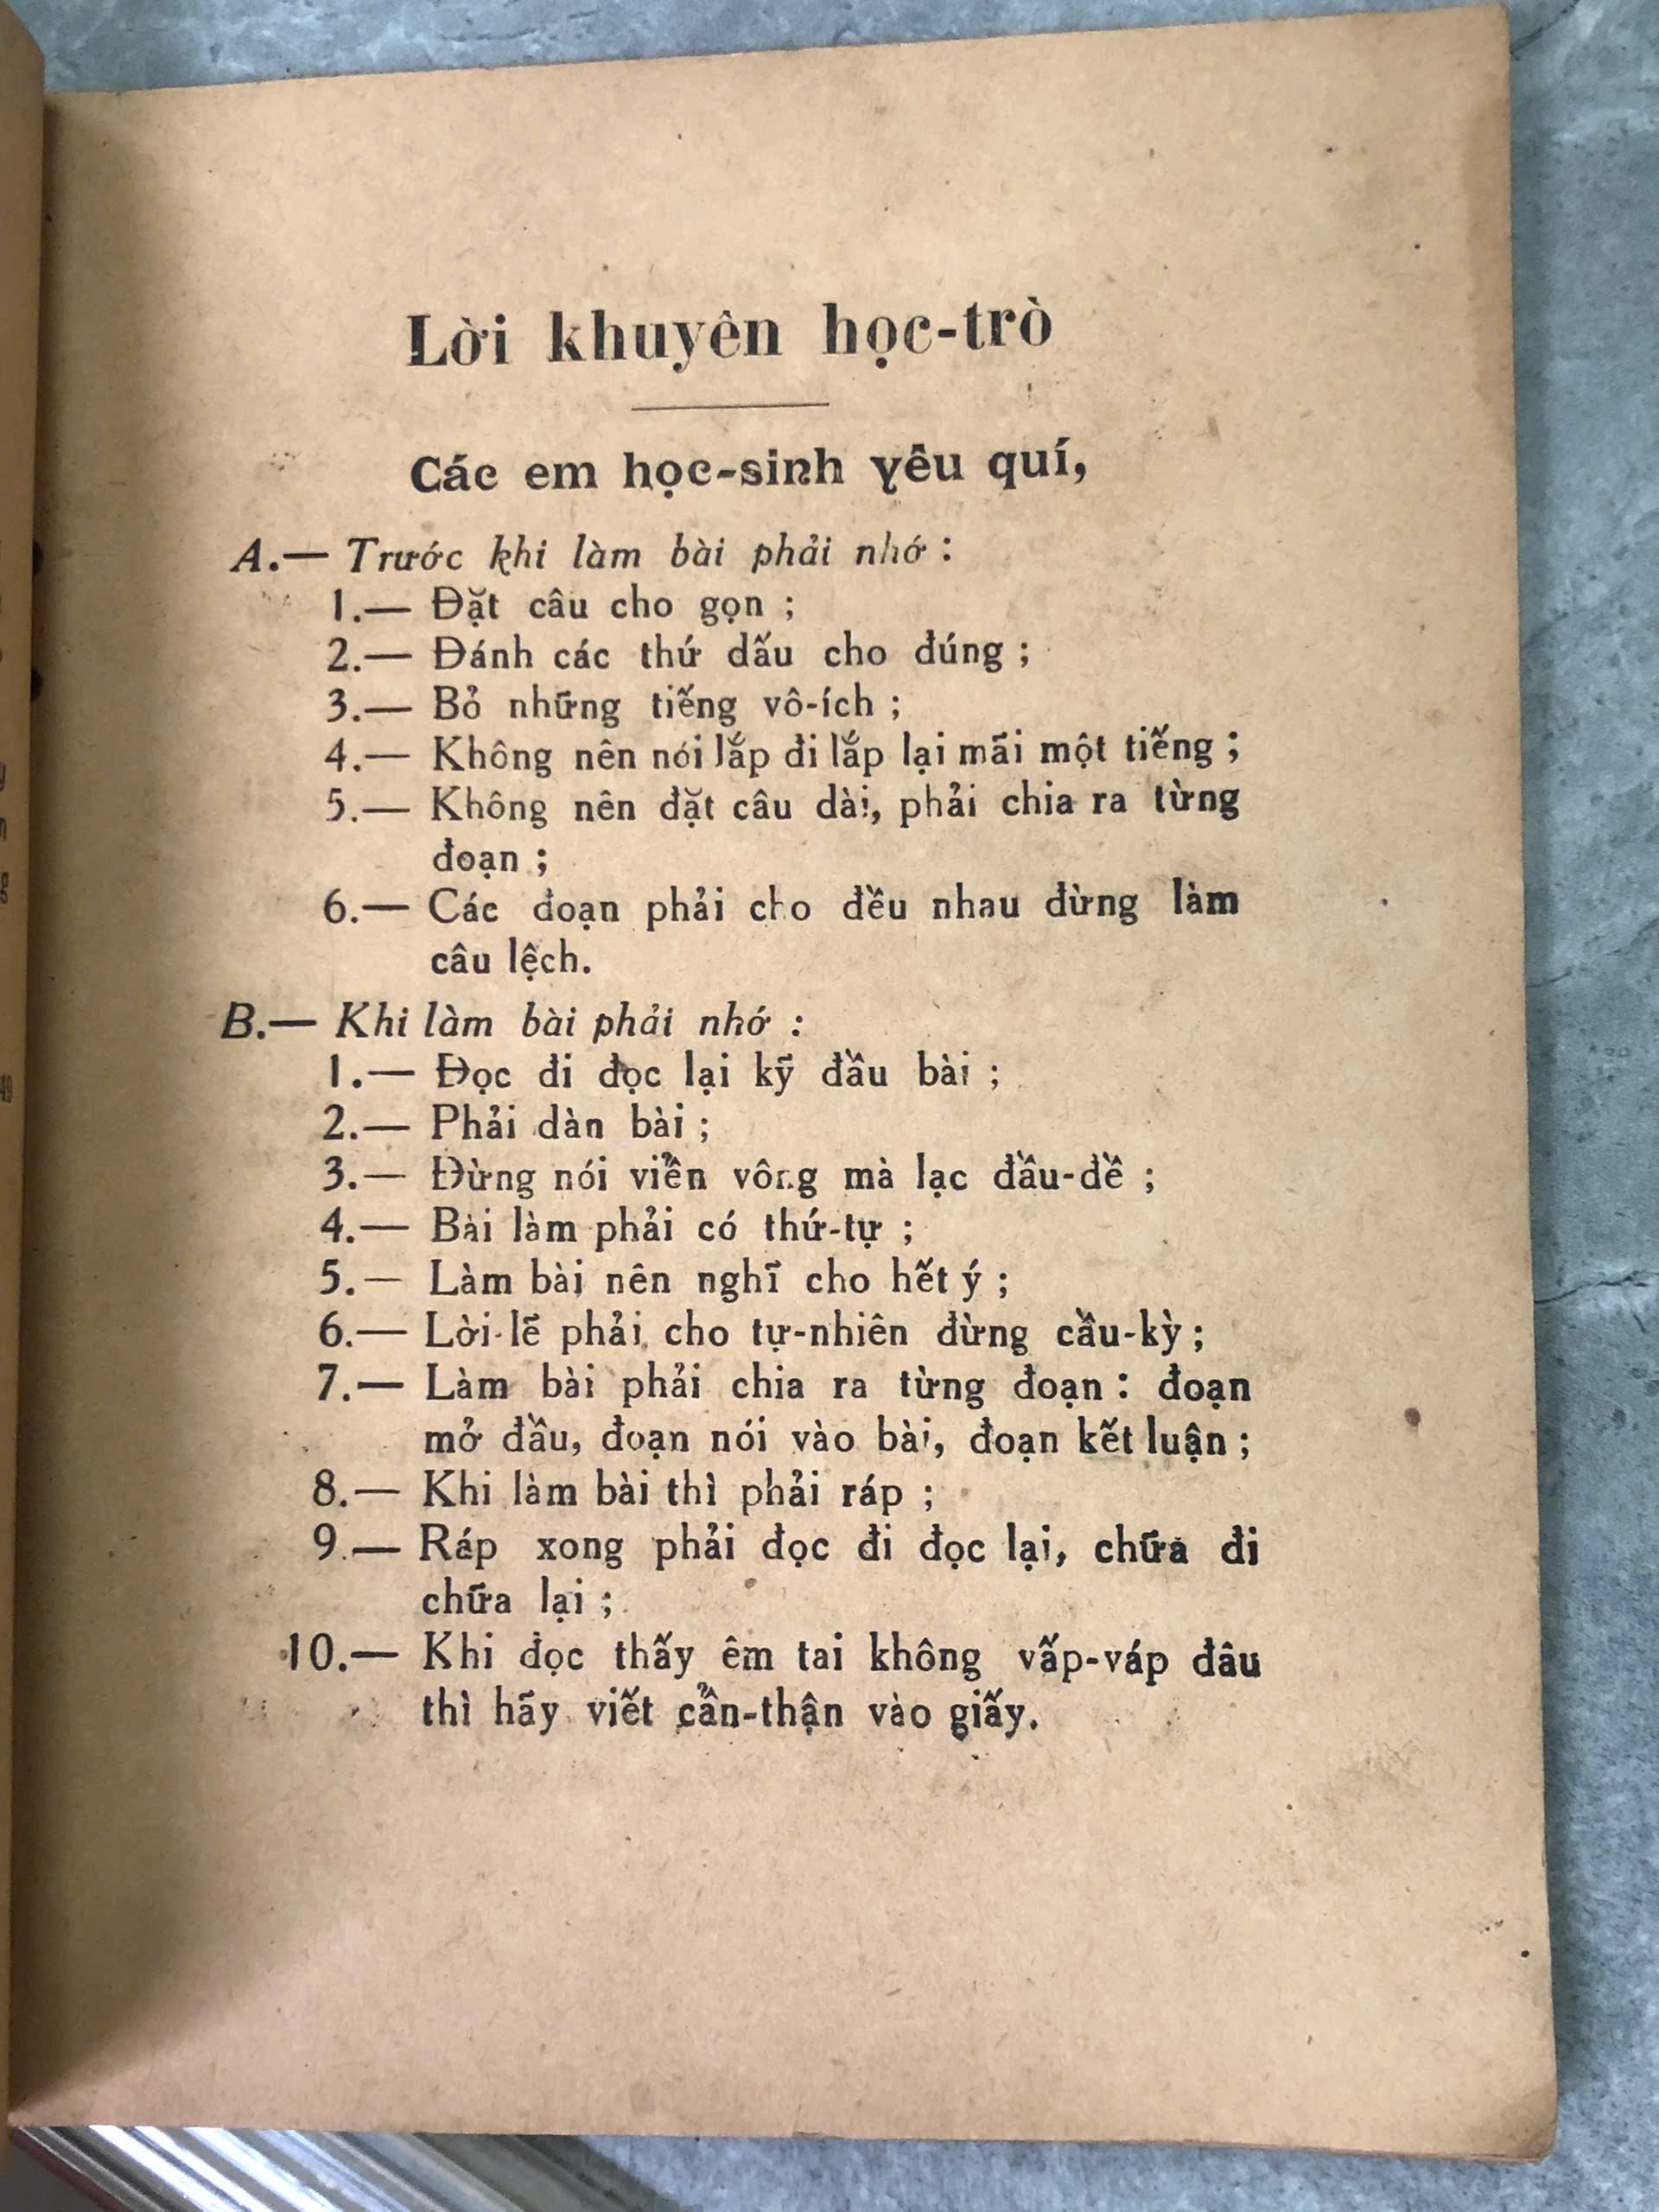 Lời khuyên học-trò
Các em học-sinh yêu quí,
A.— Trước khi làm bài phải nhớ :
1.— Đặt câu cho gọn ;
2.— Đánh các thứ dấu cho đúng ;
3.— Bỏ những tiếng vô-ích ;
4.— Không nên nói lắp đi lắp lại mãi một tiếng ;
5.— Không nên đặt câu dài, phải chia ra từng
đoạn ;
6.— Các đoạn phải cho đều nhau đừng làm
câu lệch.
B.— Khi làm bài phải nhớ :
1.— Đọc đi đọc lại kỹ đầu bài ;
2.— Phải dàn bài ;
3.— Đừng nói viển vông mà lạc đầu-đề ;
4.— Bài làm phải có thứ-tự ;
5.— Làm bài nên nghĩ cho hết ý ;
6.— Lời-lẽ phải cho tự-nhiên đừng cầu-kỳ ;
7.— Làm bài phải chia ra từng đoạn : đoạn
mở đầu, đoạn nói vào bài, đoạn kết luận ;
8.— Khi làm bài thì phải ráp ;
9.— Ráp xong phải đọc đi đọc lại, chữa đi
chữa lại ;
10.— Khi đọc thấy êm tai không vấp-váp đâu
thì hãy viết cẩn-thận vào giấy.